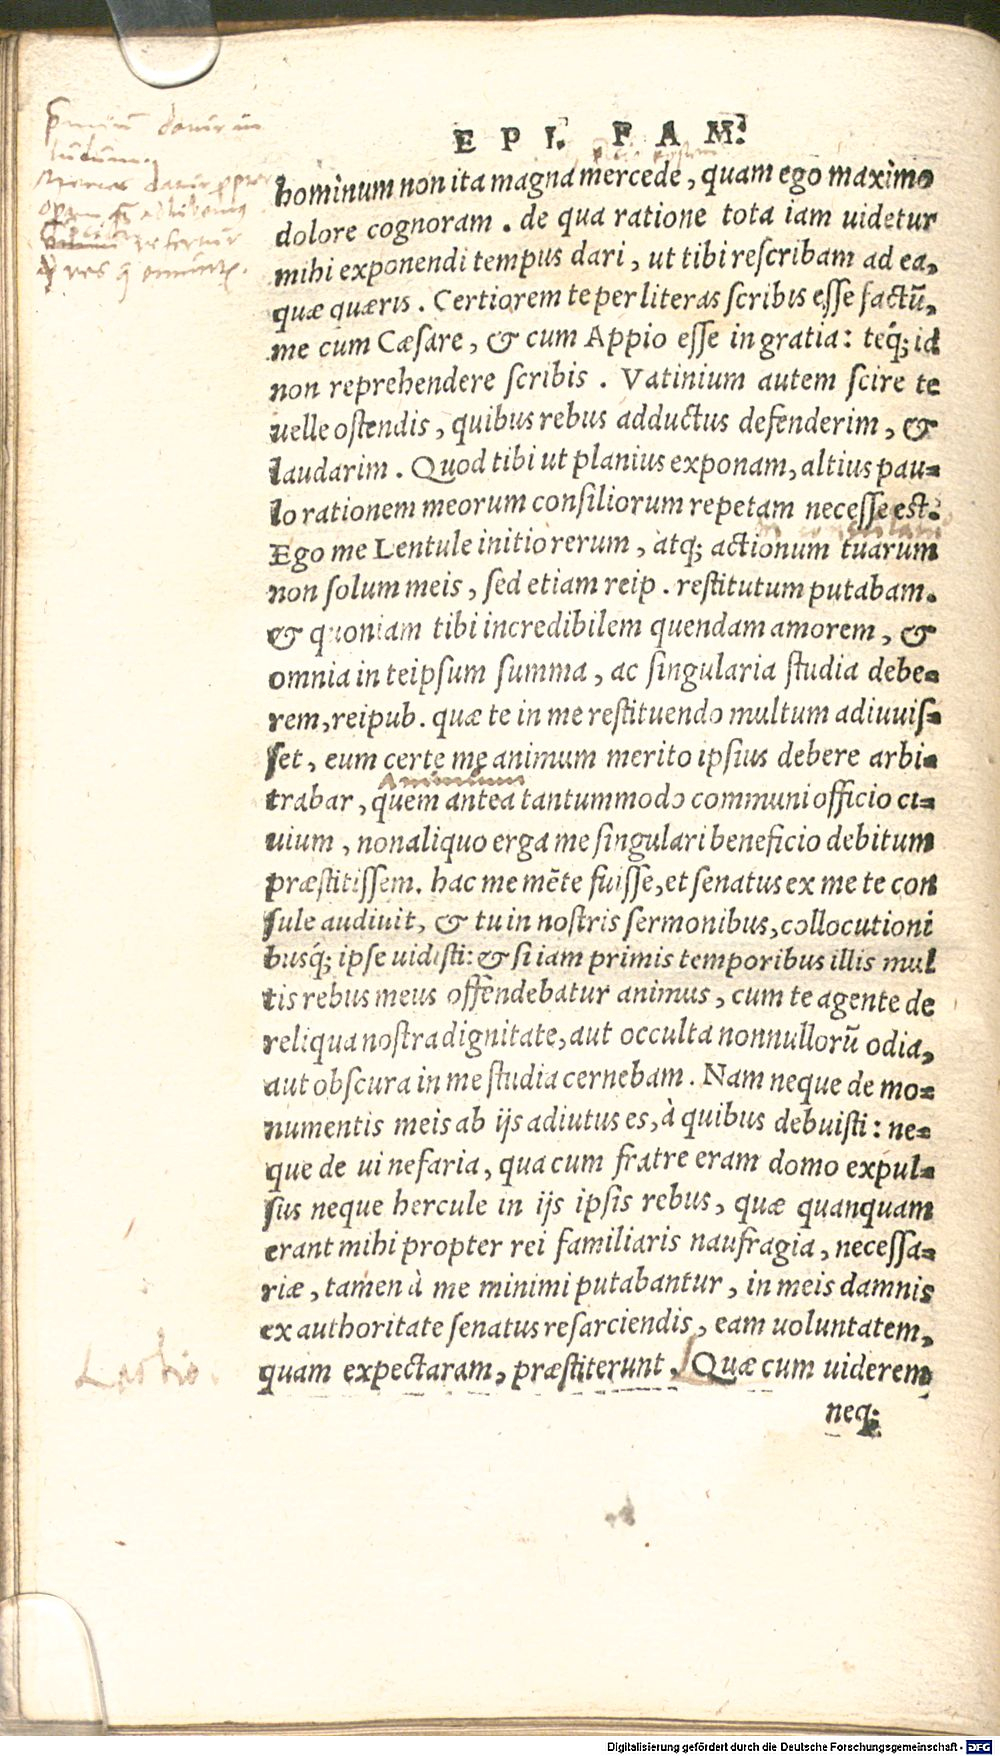 EPI. FAM.
hominum non ita magna mercede, quam ego maximo
dolore cognoram. de qua ratione tota iam uidetur
mihi exponendi tempus dari, ut tibi rescribam ad ea,
quæ quæris. Certiorem te per literas scribis esse factũ,
me cum Cæsare, & cum Appio esse in gratia: teq́; id
non reprehendere scribis. Vatinium autem scire te
uelle ostendis, quibus rebus adductus defenderim, &
laudarim. Quod tibi ut planius exponam, altius pau-
lo rationem meorum consiliorum repetam necesse est.
Ego me Lentule initio rerum, atq; actionum tuarum
non solum meis, sed etiam reip. restitutum putabam.
& quoniam tibi incredibilem quendam amorem, &
omnia in teipsum summa, ac singularia studia debe-
rem, reipub. quæ te in me restituendo multum adiuuis-
set, eum certe me animum merito ipsius debere arbi-
Animum
trabar, quem antea tantummodo communi officio ci-
uium, non aliquo erga me singulari beneficio debitum
præstitissem. hac me mẽte fuisse, et senatus ex me te con
sule audiuit, & tu in nostris sermonibus, collocutioni
busq́; ipse uidisti: & si iam primis temporibus illis mul
tis rebus meus offendebatur animus, cum te agente de
reliqua nostra dignitate, aut occulta nonnullorũ odia,
aut obscura in me studia cernebam. Nam neque de mo-
numentis meis ab ijs adiutus es, à quibus debuisti: ne-
que de ui nefaria, qua cum fratre eram domo expul-
sus neque hercule in ijs ipsis rebus, quæ quanquam
erant mihi propter rei familiaris naufragia, necessa-
riæ, tamen à me minimi putabantur, in meis damnis
ex authoritate senatus resarciendis, eam uoluntatem,
quam expectaram, præstiterunt. Quæ cum uiderem
neq;
Digitalisierung gefördert durch die Deutsche Forschungsgemeinschaft - DFG